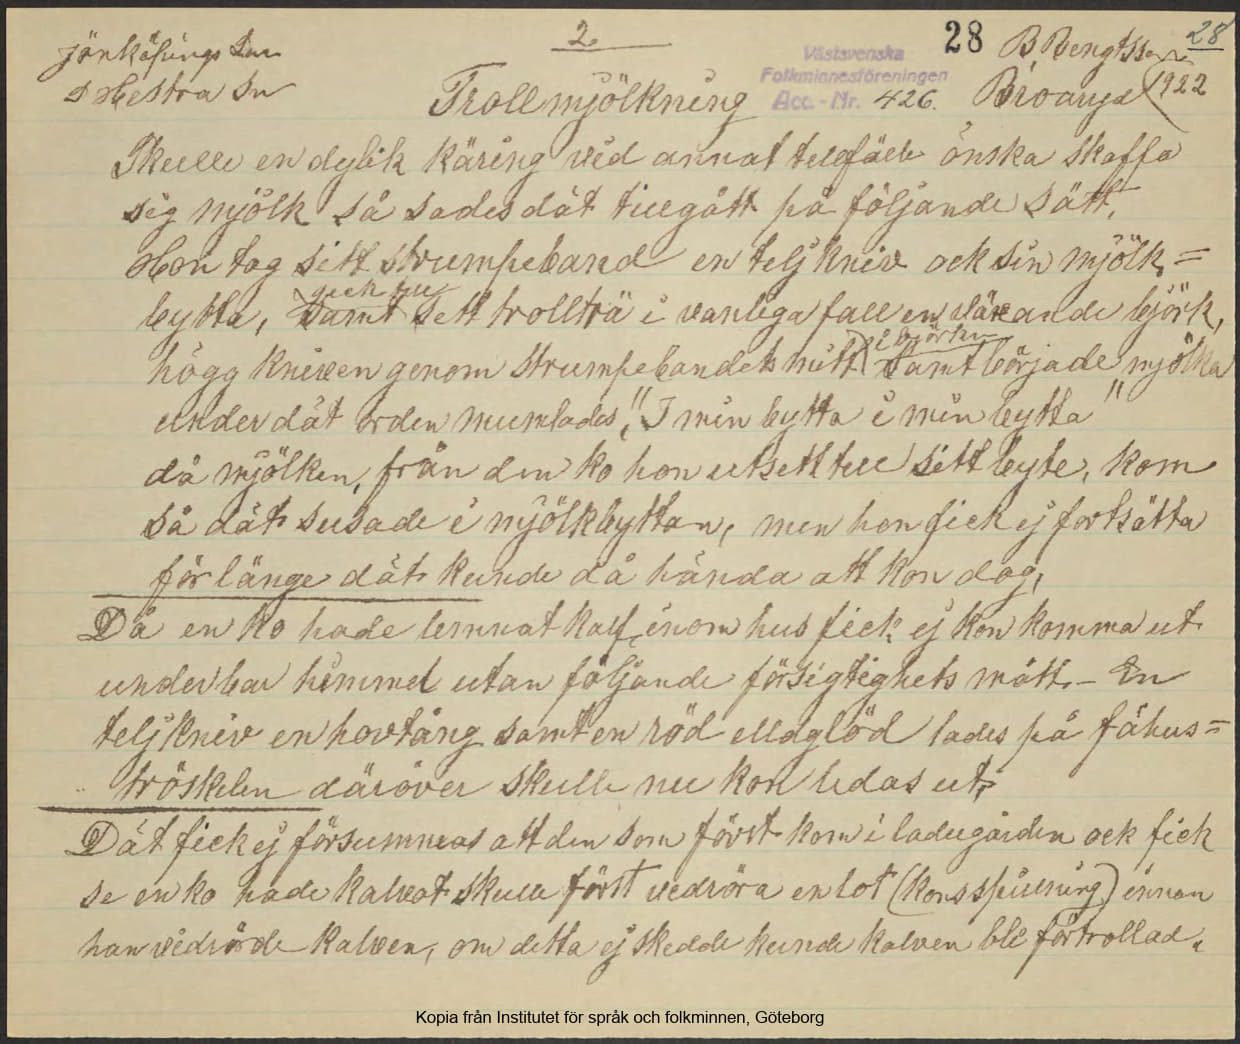 2.
28
28
Jönköpings Län
S Hestra Sn
Västsvenska
Folkminnesföreningen
Acc.-Nr. 426.
B. Bengtsson
Bröaryd 1922
Trollmjölkning
Skulle en dylik käring vid annat tillfälle önska skaffa
sig mjölk så sades dät tillgått på följande sätt.
Hon tog sitt strumpeband en teljkniv ock sin mjölk=
gick till
bytta, samt sett trollträ i vanliga fall en växande björk,
i björken
högg kniven genom strumpebandets mitt samt började mjölka
under dät orden mumlades, "I min bytta i min bytta"
då mjölken, från den ko hon utsett till sitt byte, kom
så dät susade i mjölkbyttan, men hon fick ej fortsätta
för länge dät kunde då hända att kon dog.
Då en ko hade lemnat kalf inom hus fick ej kon komma ut
under bar himmel utan följande försigtighets mått. - En
teljkniv en hovtång samt en röd eldglöd lades på fähus=
tröskelen däröver skulle nu kon ledas ut.
Dät fick ej försummas att den som först kom i ladugården ock fick
se en ko hade kalvat skulle först vedröra en lot (kons spillning) innan
han vidrörde kalven, om detta ej skedde kunde kalven bli förtrollad.
Kopia från Institutet för språk och folkminnen, Göteborg